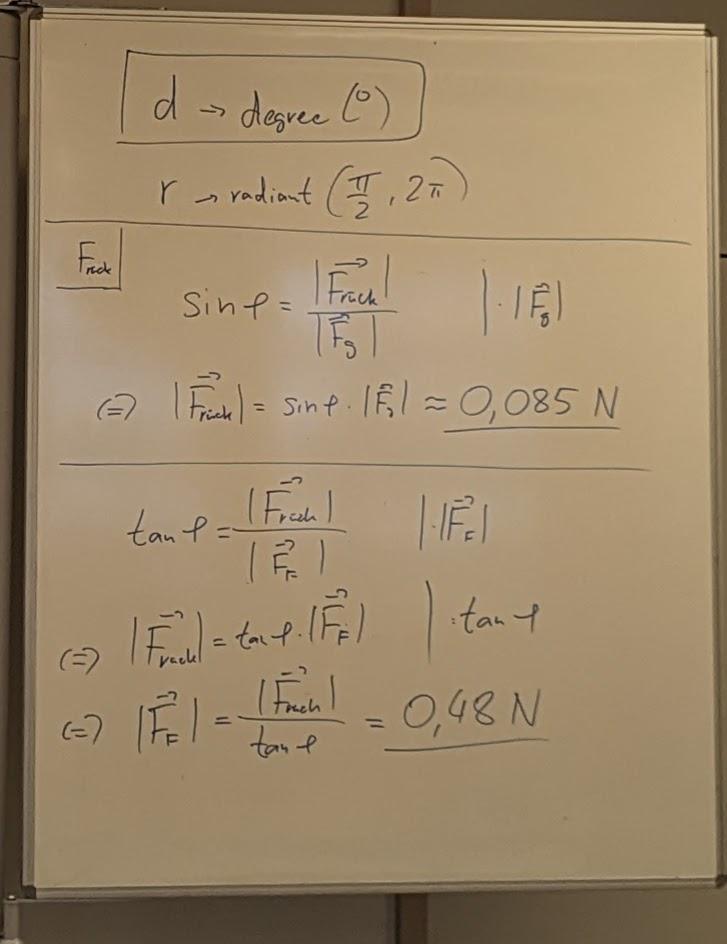 d → degree (°)
r → radiant (π/2, 2π)
F⃗rück
sin φ = |F⃗rück| / |F⃗g| | · |F⃗g|
(=) |F⃗rück| = sin φ · |F⃗g| ≈ 0,085 N
tan φ = |F⃗rück| / |F⃗F| | · |F⃗F|
(=) |F⃗rück| = tan φ · |F⃗F| | : tan φ
(=) |F⃗F| = |F⃗rück| / tan φ = 0,48 N